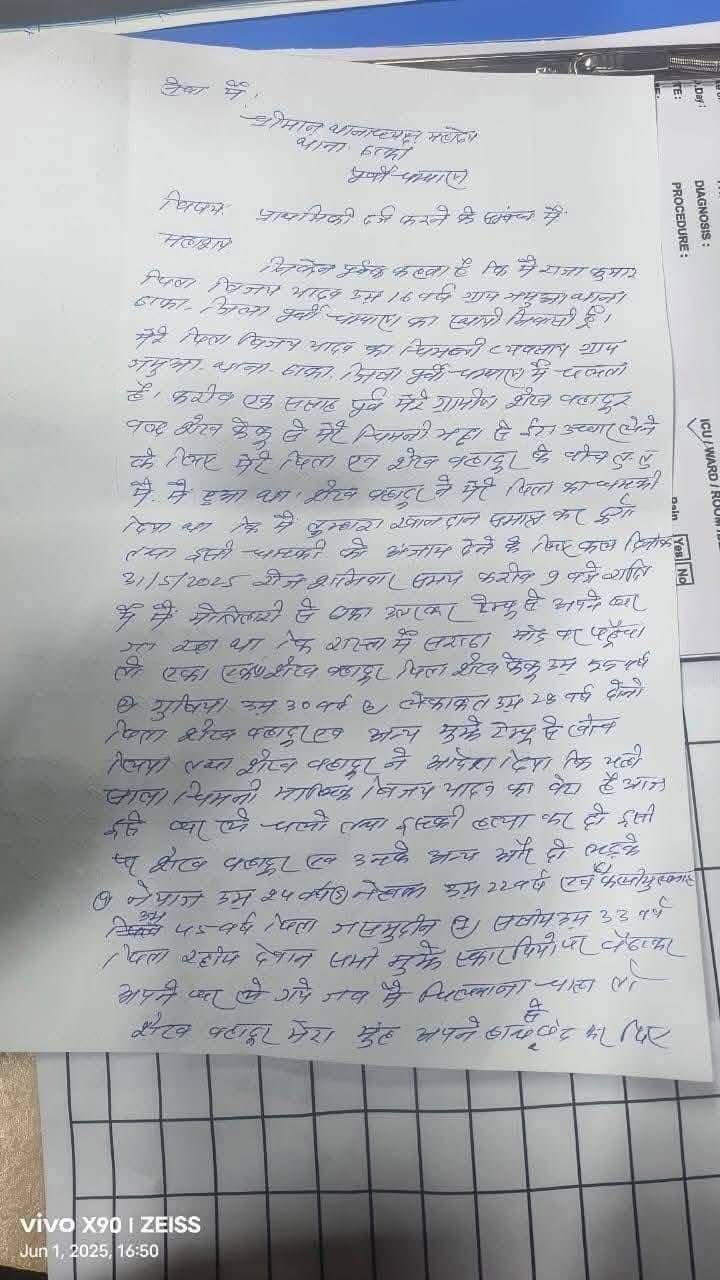 सेवा में!
श्रीमान थानाध्यक्ष महोदय
थाना ढाका
पूर्वी चम्पारण
विषय: प्राथमिकी दर्ज करने के संबंध में
महाशय
निवेदन पूर्वक कहना है कि मैं राजा कुमार
पिता विजय यादव उम्र 16 वर्ष ग्राम जमुआ थाना
ढाका- जिला पूर्वी चम्पारण का स्थायी निवासी हूँ।
मेरे पिता विजय यादव का चिमनी व्यवसाय ग्राम
जमुआ- थाना- ढाका- जिला पूर्वी चम्पारण में चलता
है। करीब एक सप्ताह पूर्व मेरे ग्रामीण शेख बहादूर
वल्द शेख फेकू से मेरे चिमनी भट्ठा से ईंटा उधार लेने
के लिए मेरे पिता एवं शेख बहादूर के बीच तु-तु
मैं-मैं हुआ था। शेख बहादूर ने मेरे पिता को धमकी
दिया था कि मैं तुम्हारा खानदान समाप्त कर दूंगा
तथा इसी धमकी को अंजाम देने के लिए कल दिनांक
31/5/2025 रोज शनिवार समय करीब 9 बजे रात्रि
में मैं मोतिहारी से ढाका उतरकर टेम्पू से अपने घर
जा रहा था कि रास्ता में सराठा मोड़ पर पहुँचा
तो एका एक शेख बहादूर पिता शेख फेकू उम्र 55 वर्ष
उम्र 30 वर्ष उम्र 28 वर्ष दोनो
पिता शेख बहादूर एवं अन्य मुझे टेम्पू से खींच
लिया तथा शेख बहादूर ने आदेश दिया कि यही
साला चिमनी मालिक विजय यादव का बेटा है आज
इसे घर ले चलो तथा इसकी हत्या कर दो इसी
पर शेख बहादूर एवं उनके अन्य और दो लड़के
उम्र 24 वर्ष उम्र 22 वर्ष एवं
उम्र 45 वर्ष पिता उम्र 33 वर्ष
पिता सभी मुझे स्कारपियो पर बैठाकर
अपने घर ले गये जब मैं चिल्लाना चाहा तो
शेख बहादूर मेरा मुंह अपने हाथ से बंद कर दिए
vivo X90 | ZEISS
Jun 1, 2025, 16:50
DIAGNOSIS :
PROCEDURE :
ICU / WARD / ROOM
Pain
Yes
No